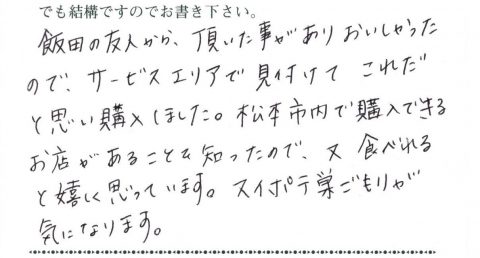 でも結構ですのでお書き下さい。
飯田の友人から、頂いた事がありおいしかった
ので、サービスエリアで見付けて これだ
と思い購入しました。松本市内で購入できる
お店があることを知ったので、又 食べれる
と嬉しく思っています。スイポテ巣ごもりが
気になります。